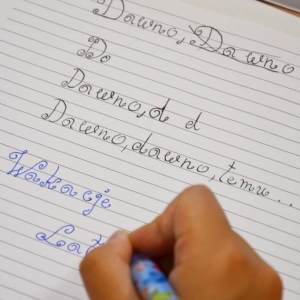 Dawno, Dawno
Do
Dawno, d d
Dawno, dawno, temu...
Wakacje
Lat